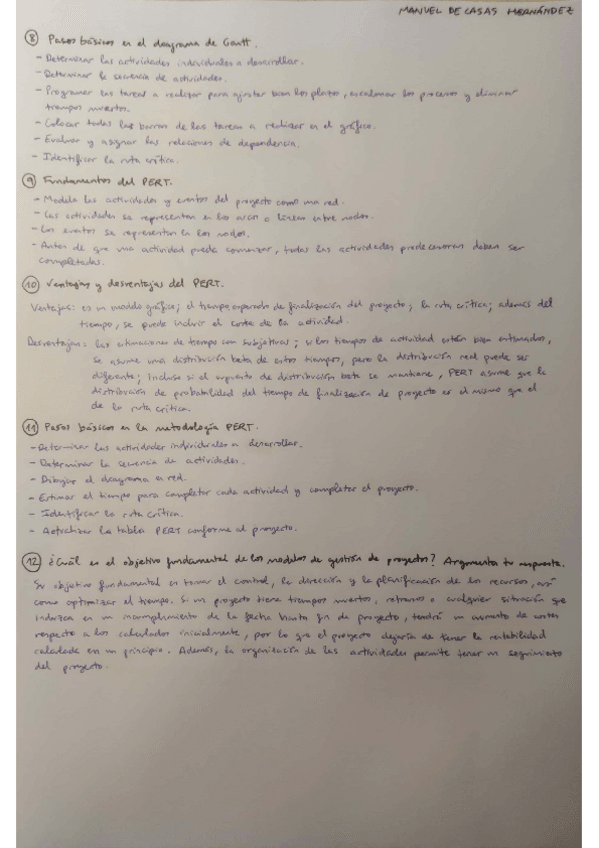 MANUEL DE CASAS HERNÁNDEZ
8 Pasos básicos en el diagrama de Gantt.
- Determinar las actividades individuales a desarrollar.
- Determinar la secuencia de actividades.
- Programar las tareas a realizar para ajustar bien los plazos, escalonar los procesos y eliminar
tiempos muertos.
- Colocar todas las barras de las tareas a realizar en el gráfico.
- Evaluar y asignar las relaciones de dependencia.
- Identificar la ruta crítica.
9 Fundamentos del PERT.
- Modela las actividades y eventos del proyecto como una red.
- Las actividades se representan en los arcos o líneas entre nodos.
- Los eventos se representan en los nodos.
- Antes de que una actividad pueda comenzar, todas las actividades predecesoras deben ser
completadas.
10 Ventajas y desventajas del PERT.
Ventajas: es un modelo gráfico; el tiempo esperado de finalización del proyecto; la ruta crítica; además del
tiempo, se puede incluir el coste de la actividad.
Desventajas: las estimaciones de tiempo son subjetivas; si los tiempos de actividad están bien estimados,
se asume una distribución beta de estos tiempos, pero la distribución real puede ser
diferente; incluso si el supuesto de distribución beta se mantiene, PERT asume que la
distribución de probabilidad del tiempo de finalización de proyecto es el mismo que el
de la ruta crítica.
11 Pasos básicos en la metodología PERT.
- Determinar las actividades individuales a desarrollar.
- Determinar la secuencia de actividades.
- Dibujar el diagrama en red.
- Estimar el tiempo para completar cada actividad y completar el proyecto.
- Identificar la ruta crítica.
- Actualizar la tabla PERT conforme al proyecto.
12 ¿Cuál es el objetivo fundamental de los modelos de gestión de proyectos? Argumenta tu respuesta.
Su objetivo fundamental es tomar el control, la dirección y la planificación de los recursos, así
como optimizar el tiempo. Si un proyecto tiene tiempos muertos, retrasos o cualquier situación que
induzca en un incumplimiento de la fecha hasta fin de proyecto, tendrá un aumento de costes
respecto a los calculados inicialmente, por lo que el proyecto dejaría de tener la rentabilidad
calculada en un principio. Además, la organización de las actividades permite tener un seguimiento
del proyecto.